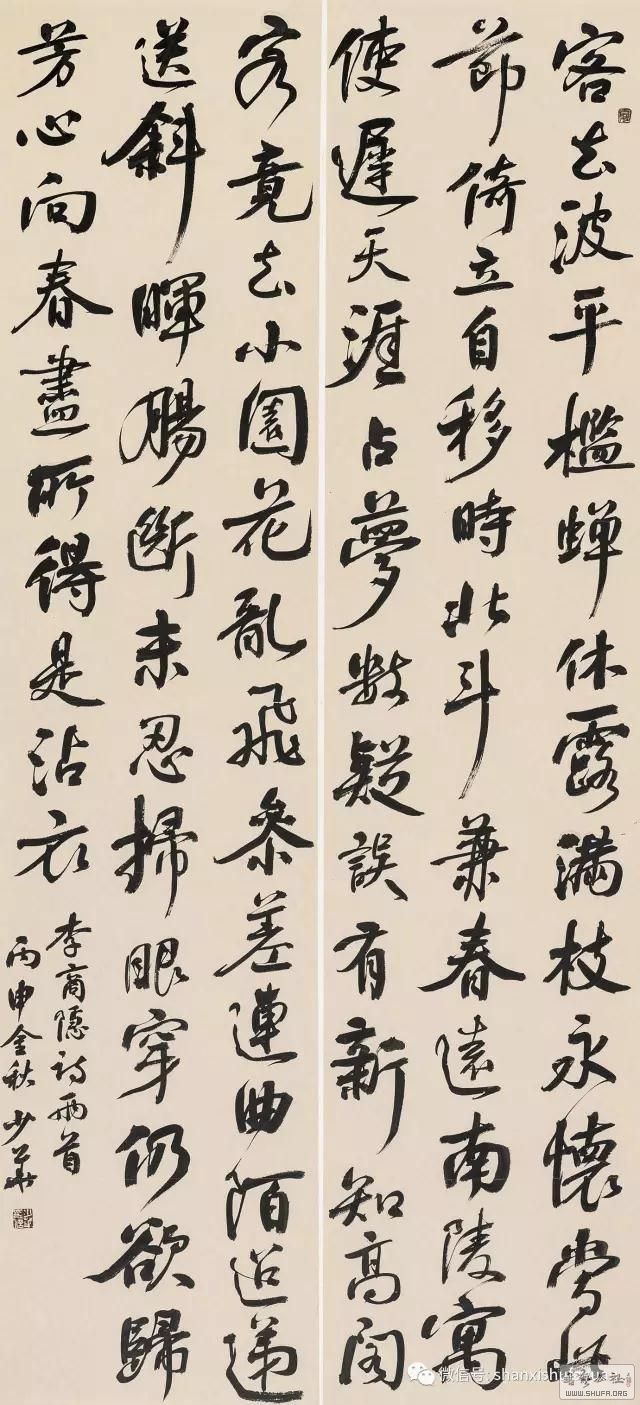 客去波平檻蝉休露滿枝永懷當此
節倚立自移時北斗兼春遠南陵寓
使遲天涯占夢數疑誤有新知高閣
客竟去小園花亂飛參差連曲陌迢遞
送斜暉腸斷未忍掃眼穿仍欲歸
芳心向春盡所得是沾衣
李商隱詩兩首
丙申金秋少華
微信号:
WWW.SHUFA.ORG